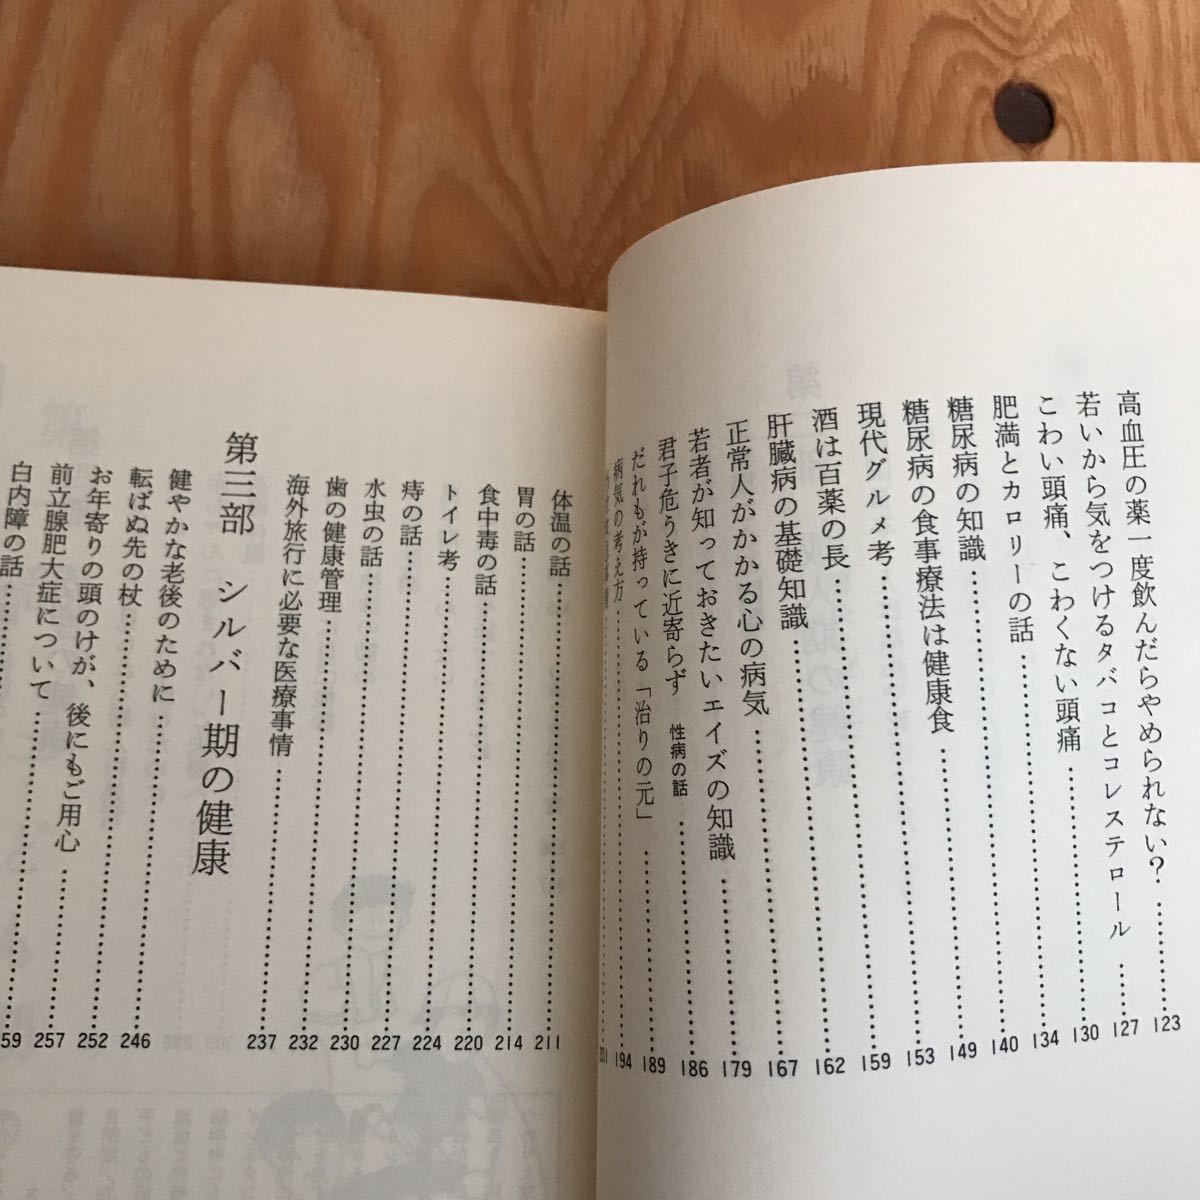 高血圧の薬一度飲んだらやめられない？……123
若いから気をつけるタバコとコレステロール……127
こわい頭痛、こわくない頭痛……130
肥満とカロリーの話……134
糖尿病の知識……140
糖尿病の食事療法は健康食……149
現代グルメ考……153
酒は百薬の長……159
肝臓病の基礎知識……162
正常人がかかる心の病気……167
若者が知っておきたいエイズの知識……179
君子危うきに近寄らず　性病の話……186
だれもが持っている「治りの元」……189
病気の考え方……194
……201
体温の話……211
胃の話……214
食中毒の話……220
トイレ考……224
痔の話……227
水虫の話……230
歯の健康管理……232
海外旅行に必要な医療事情……237
第三部　シルバー期の健康
健やかな老後のために……246
転ばぬ先の杖……252
お年寄りの頭のけが、後にもご用心……257
前立腺肥大症について……59
白内障の話……